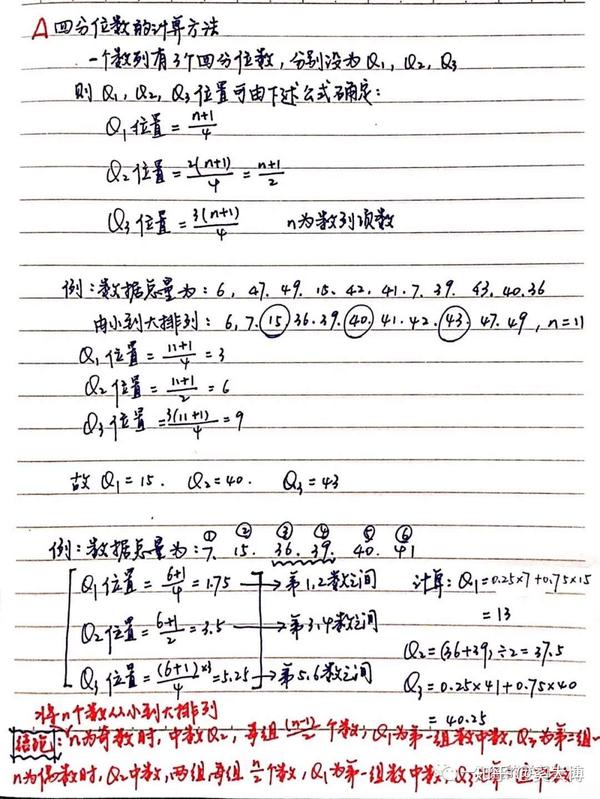 A 四分位数的计算方法
一个数列有3个四分位数，分别设为Q₁，Q₂，Q₃
则Q₁，Q₂，Q₃位置可由下述公式确定：
Q₁位置 = (n+1)/4
Q₂位置 = 2(n+1)/4 = (n+1)/2
Q₃位置 = 3(n+1)/4 n为数列项数
例：数据总量为：6，47．49．15．42．41．7．39．43．40．36
由小到大排列：6，7．15，36．39．40．41．42．43．47．49，n=11
Q₁位置 = (11+1)/4 = 3
Q₂位置 = (11+1)/2 = 6
Q₃位置 = 3(11+1)/4 = 9
故 Q₁=15． Q₂=40． Q₃=43
① ② ③ ④ ⑤ ⑥
例：数据总量为：7．15．36．39．40．41
Q₁位置 = (6+1)/4 = 1.75 → 第1.2数之间 计算：Q₁=0.25×7+0.75×15
= 13
Q₂位置 = (6+1)/2 = 3.5 → 第3.4数之间
Q₂=(36+39)÷2=37.5
Q₃位置 = (6+1)×3/4 = 5.25 → 第5.6数之间 Q₃=0.25×41+0.75×40
= 40.25
将n个数从小到大排列
结论：n为奇数时，中数Q₂，每组(n-1)/2个数；Q₁为第一组数中数，Q₃为第二组
n为偶数时，Q₂中数，两组每组n/2个数，Q₁为第一组数中数，Q₃
知乎